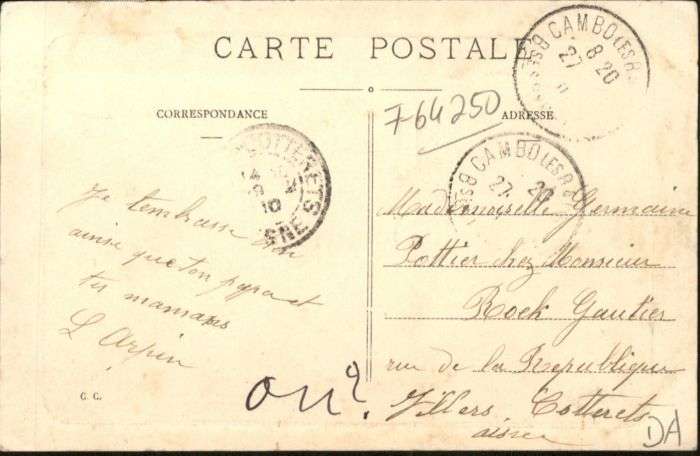 CARTE POSTALE
CORRESPONDANCE
ADRESSE
764250
CAMBO LES B
27 8 20
CAMBO LES B
27 20
COTTERETS
10
Je t'embrasse
ainsi que ton papa et
ta maman
L Arpin
Mademoiselle Germaine
Pottier chez Monsieur
Roch Gautier
rue de la République
Villers Cotterets
aisne
C. C.
on?
DA